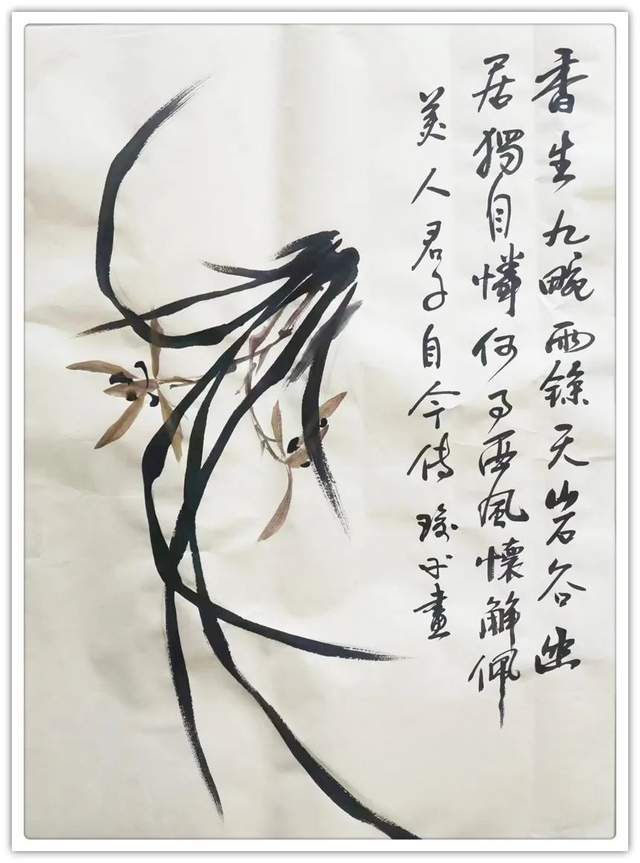 香生九畹雨餘天岩谷幽
居獨自憐何事西風懷解佩
美人君子自今傳 畫